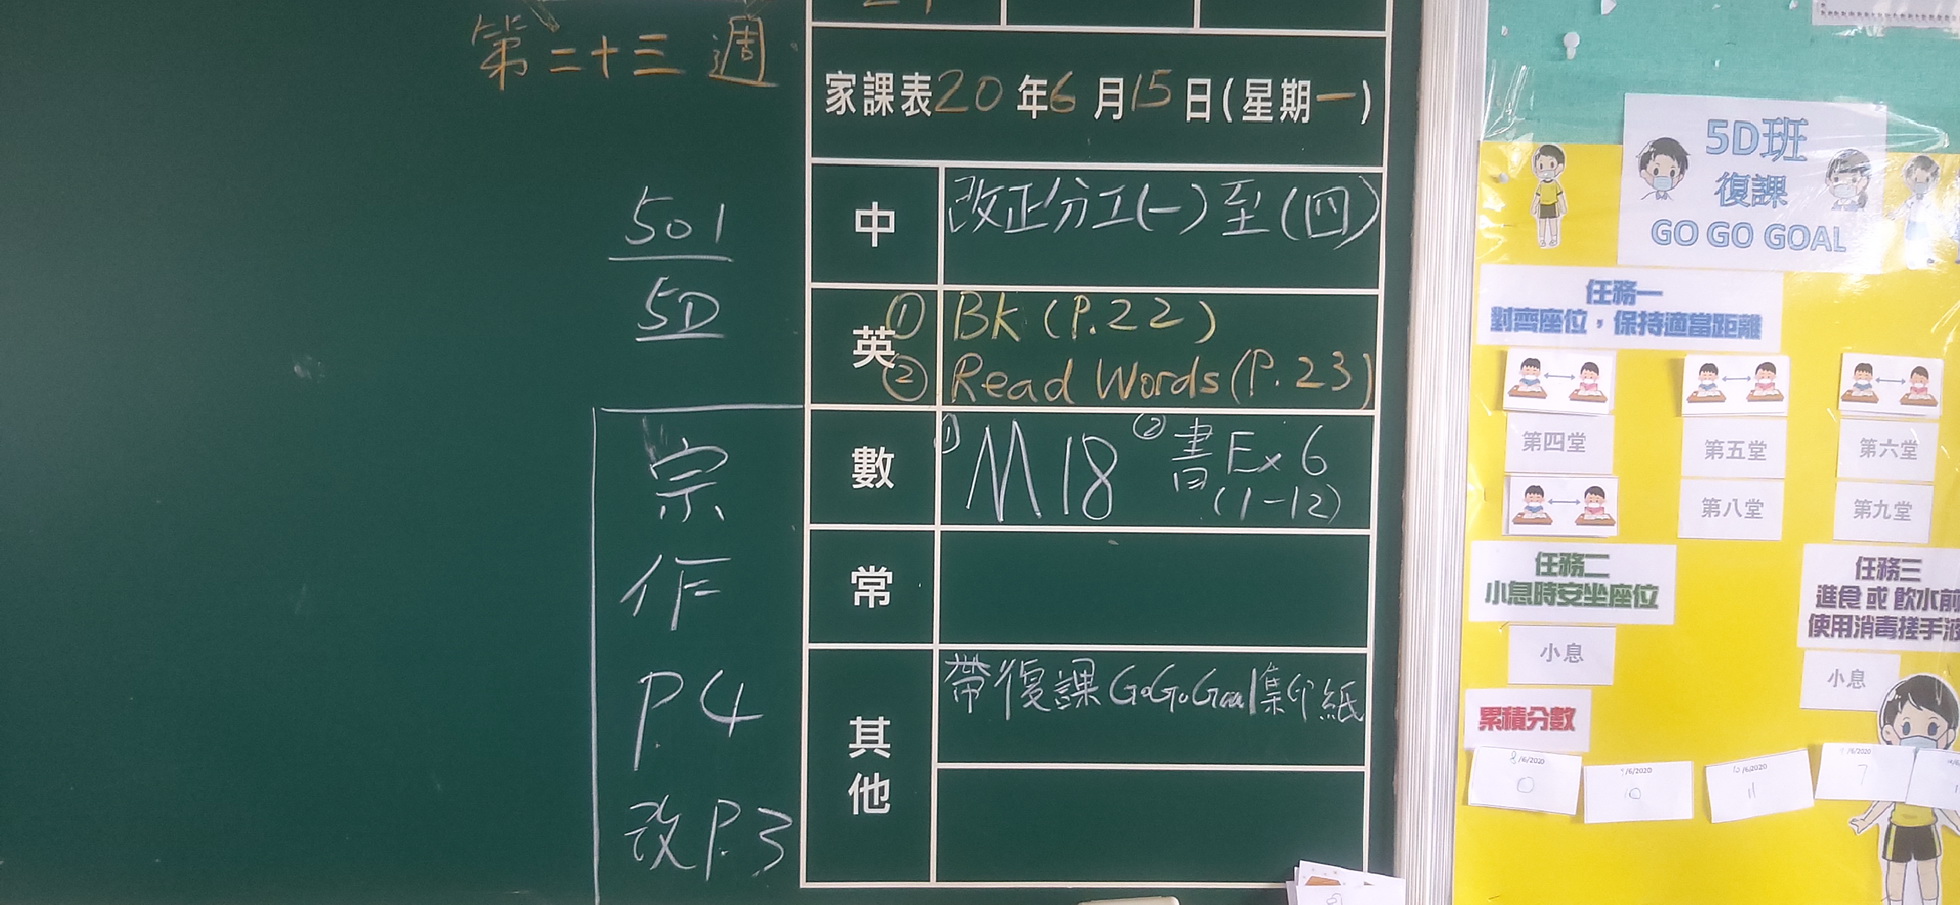 第二十三週
家課表20年6月15日(星期一)
501
5D
中
改正分工(一)至(四)
英
① BK (P.22)
② Read Words (P.23)
數
① M18 ② 書 Ex 6
(1-12)
常
其他
帶復課GoGoGoal集印紙
宗
作
P4
改P.3
5D班
復課
GO GO GOAL
任務一
對齊座位，保持適當距離
第四堂
第五堂
第六堂
第八堂
第九堂
任務二
小息時安坐座位
小息
任務三
進食 或 飲水前
使用消毒搓手液
小息
累積分數
8/6/2020
0
9/6/2020
10
10/6/2020
11
7